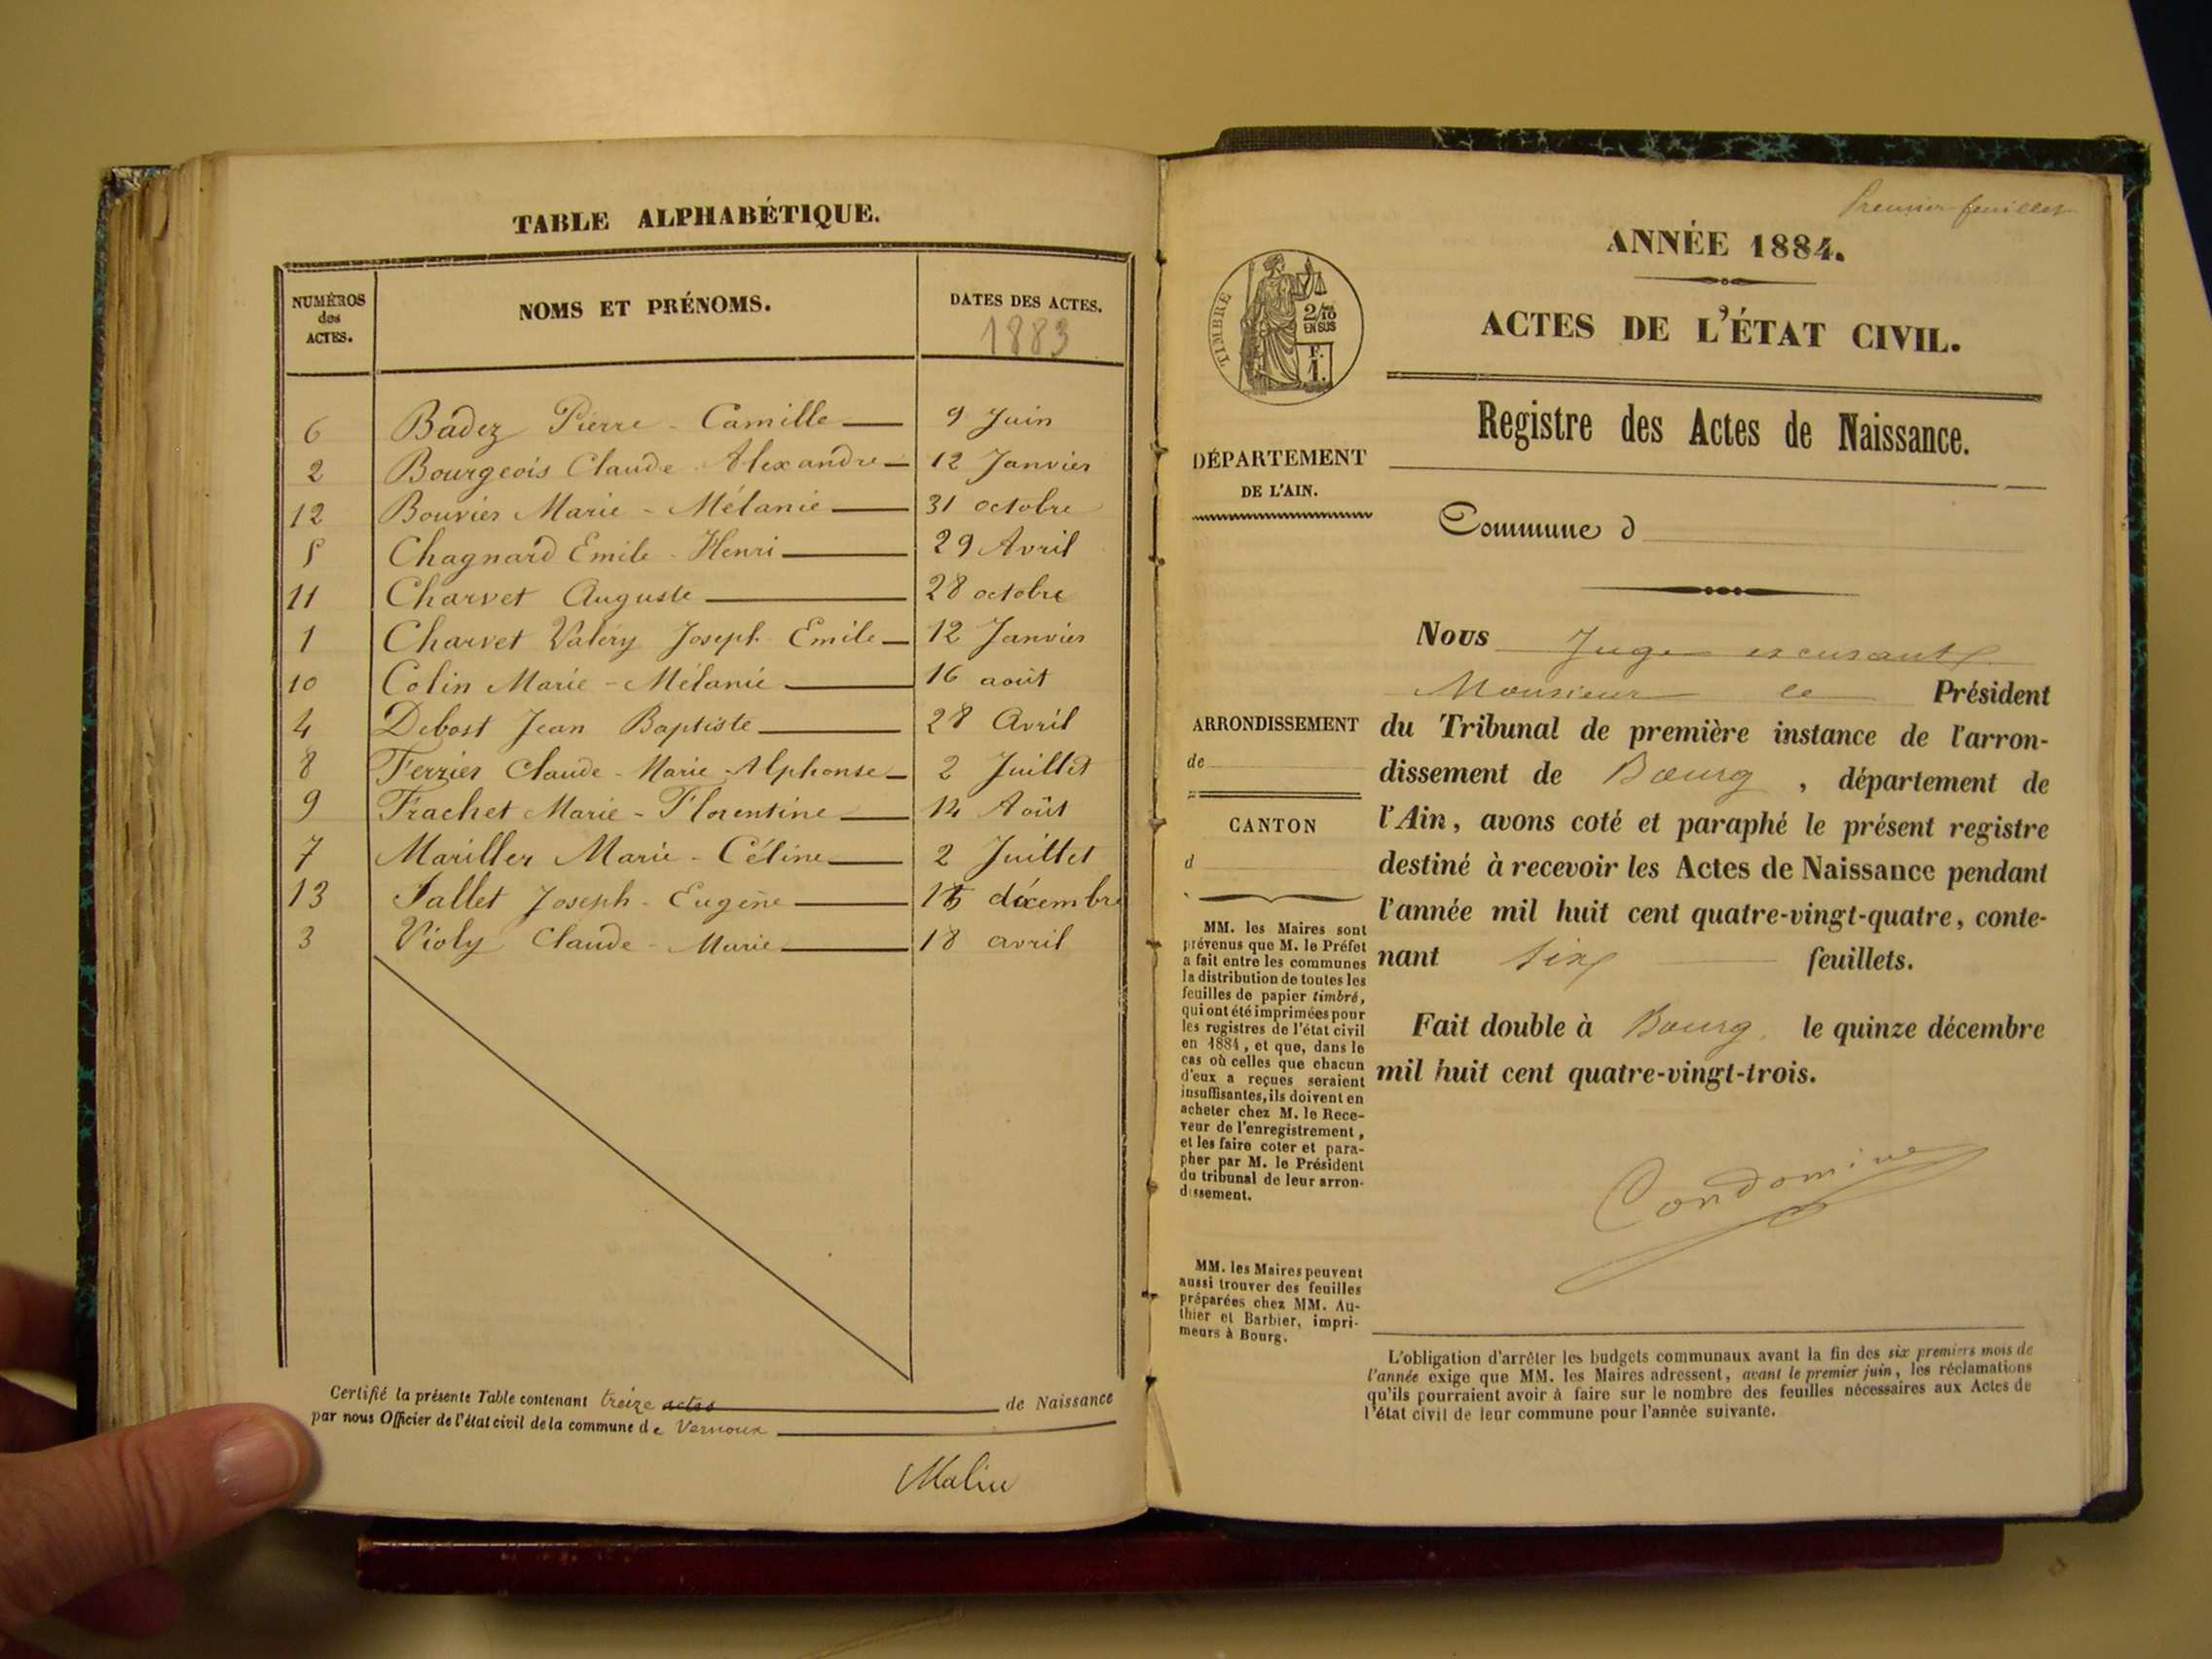 TABLE ALPHABÉTIQUE.
NUMÉROS des ACTES.
NOMS ET PRÉNOMS.
DATES DES ACTES.
1883
6 Badez Pierre - Camille 9 Juin
2 Bourgeois Claude Alexandre 12 Janvier
12 Bouvier Marie - Mélanie 31 octobre
5 Chagnard Emile - Henri 29 Avril
11 Charvet Auguste 28 octobre
1 Charvet Valéry Joseph Emile 12 Janvier
10 Colin Marie - Mélanie 16 août
4 Debost Jean Baptiste 28 Avril
8 Ferrier Claude - Marie - Alphonse 2 Juillet
9 Frachet Marie - Florentine 14 Août
7 Mariller Marie - Céline 2 Juillet
13 Sallet Joseph - Eugène décembre
3 Violy Claude - Marie 18 avril
Certifié la présente Table contenant treize actes de Naissance
par nous Officier de l'état civil de la commune de Vernoux
Premier feuillet
ANNÉE 1884.
ACTES DE L'ÉTAT CIVIL.
Registre des Actes de Naissance.
TIMBRE
2/10
EN SUS
F.
1.
DÉPARTEMENT
DE L'AIN.
Commune d
Nous Juge
Monsieur le Président
ARRONDISSEMENT
de
CANTON
d
du Tribunal de première instance de l'arron-
dissement de Bourg, département de
l'Ain, avons coté et paraphé le présent registre
destiné à recevoir les Actes de Naissance pendant
l'année mil huit cent quatre-vingt-quatre, conte-
nant six feuillets.
Fait double à Bourg, le quinze décembre
mil huit cent quatre-vingt-trois.
MM. les Maires sont
prévenus que M. le Préfet
a fait entre les communes
la distribution de toutes les
feuilles de papier timbré,
qui ont été imprimées pour
les registres de l'état civil
en 1884, et que, dans le
cas où celles que chacun
d'eux a reçues seraient
insuffisantes, ils doivent en
acheter chez M. le Rece-
veur de l'enregistrement,
et les faire coter et para-
pher par M. le Président
du tribunal de leur arron-
dissement.
MM. les Maires peuvent
aussi trouver des feuilles
préparées chez MM. Au-
thier et Barbier, impri-
meurs à Bourg.
L'obligation d'arrêter les budgets communaux avant la fin des six premiers mois de
l'année exige que MM. les Maires adressent, avant le premier juin, les réclamations
qu'ils pourraient avoir à faire sur le nombre des feuilles nécessaires aux Actes de
l'état civil de leur commune pour l'année suivante.